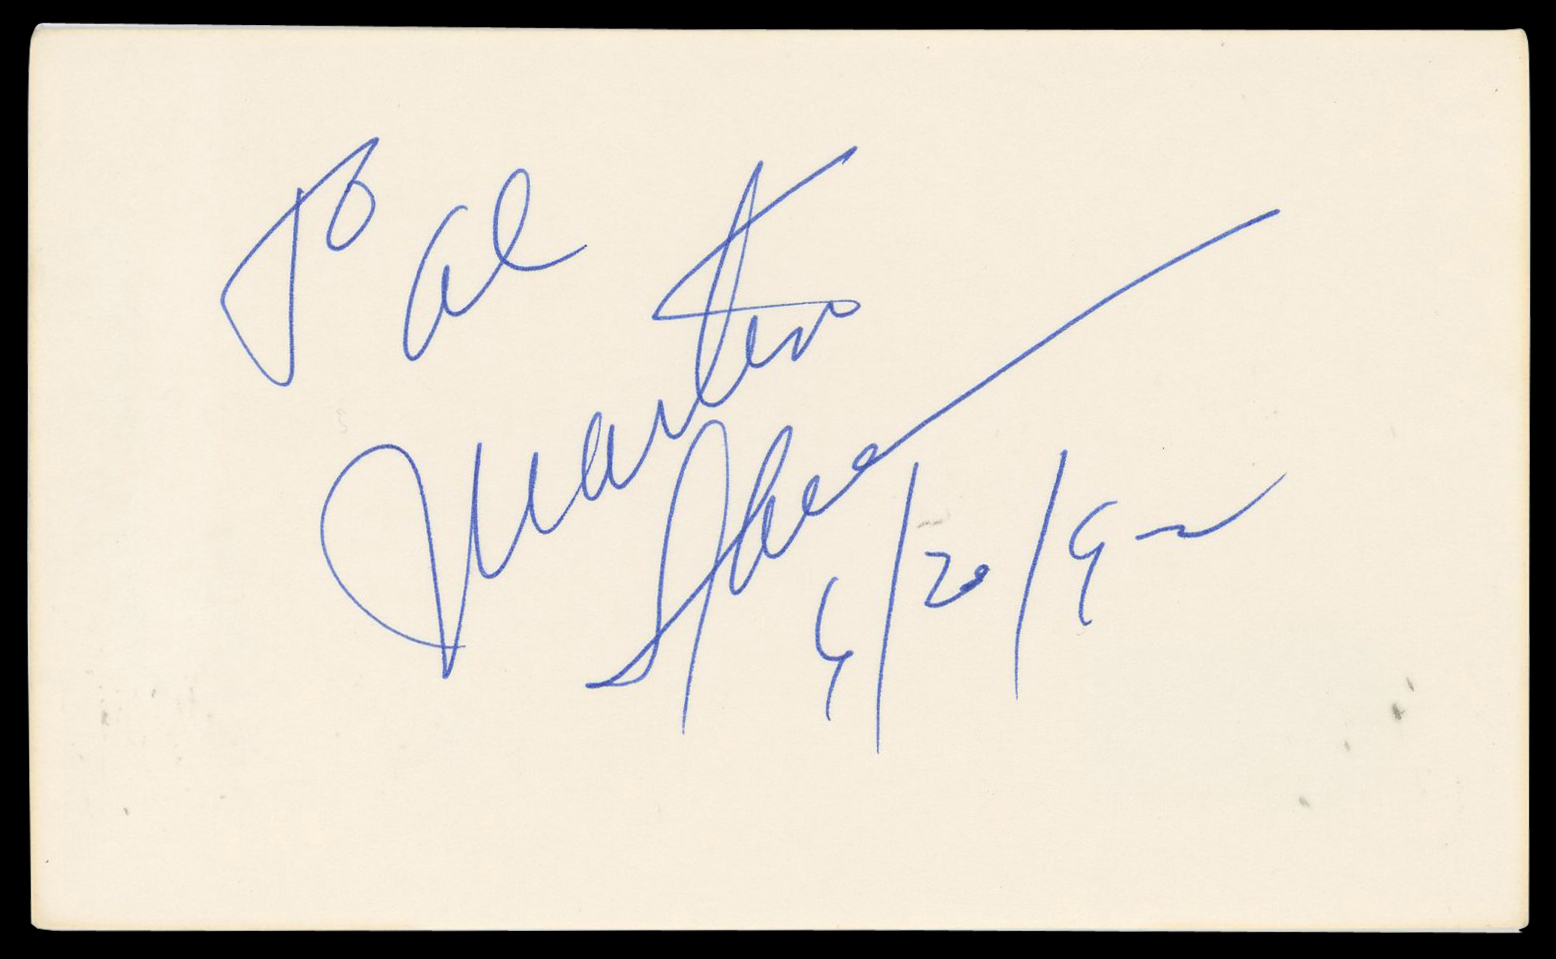 To Al
Martin
Sheen
6/20/92